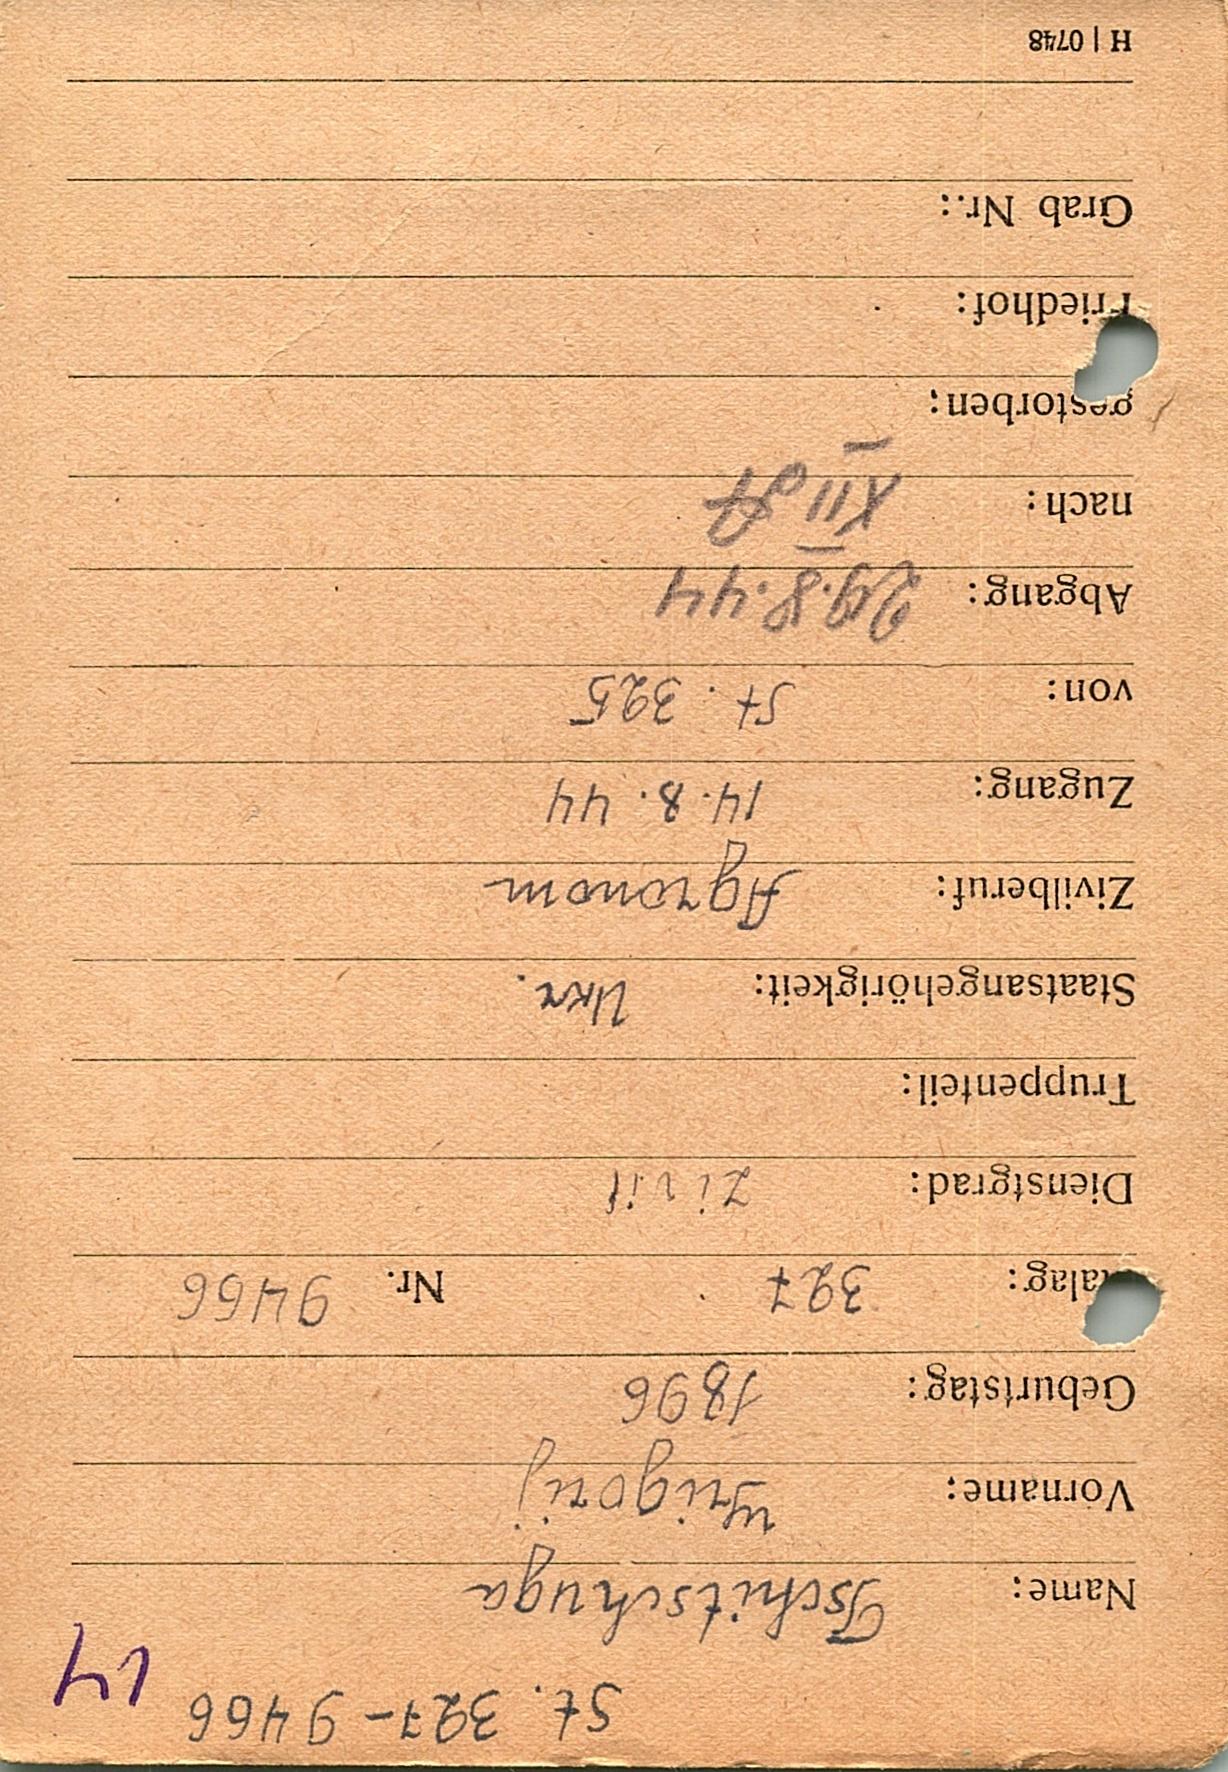 St. 327 - 9466
14
Name: Tschitschuga
Vorname: Grigorij
Geburtstag: 1896
Stalag: 327 Nr. 9466
Dienstgrad: Zivil
Truppenteil:
Staatsangehörigkeit: Ukr.
Zivilberuf: Agronom
Zugang: 14.8.44
von: St. 325
Abgang: 29.8.44
nach: XII
gestorben:
Friedhof:
Grab Nr.:
H | 0748